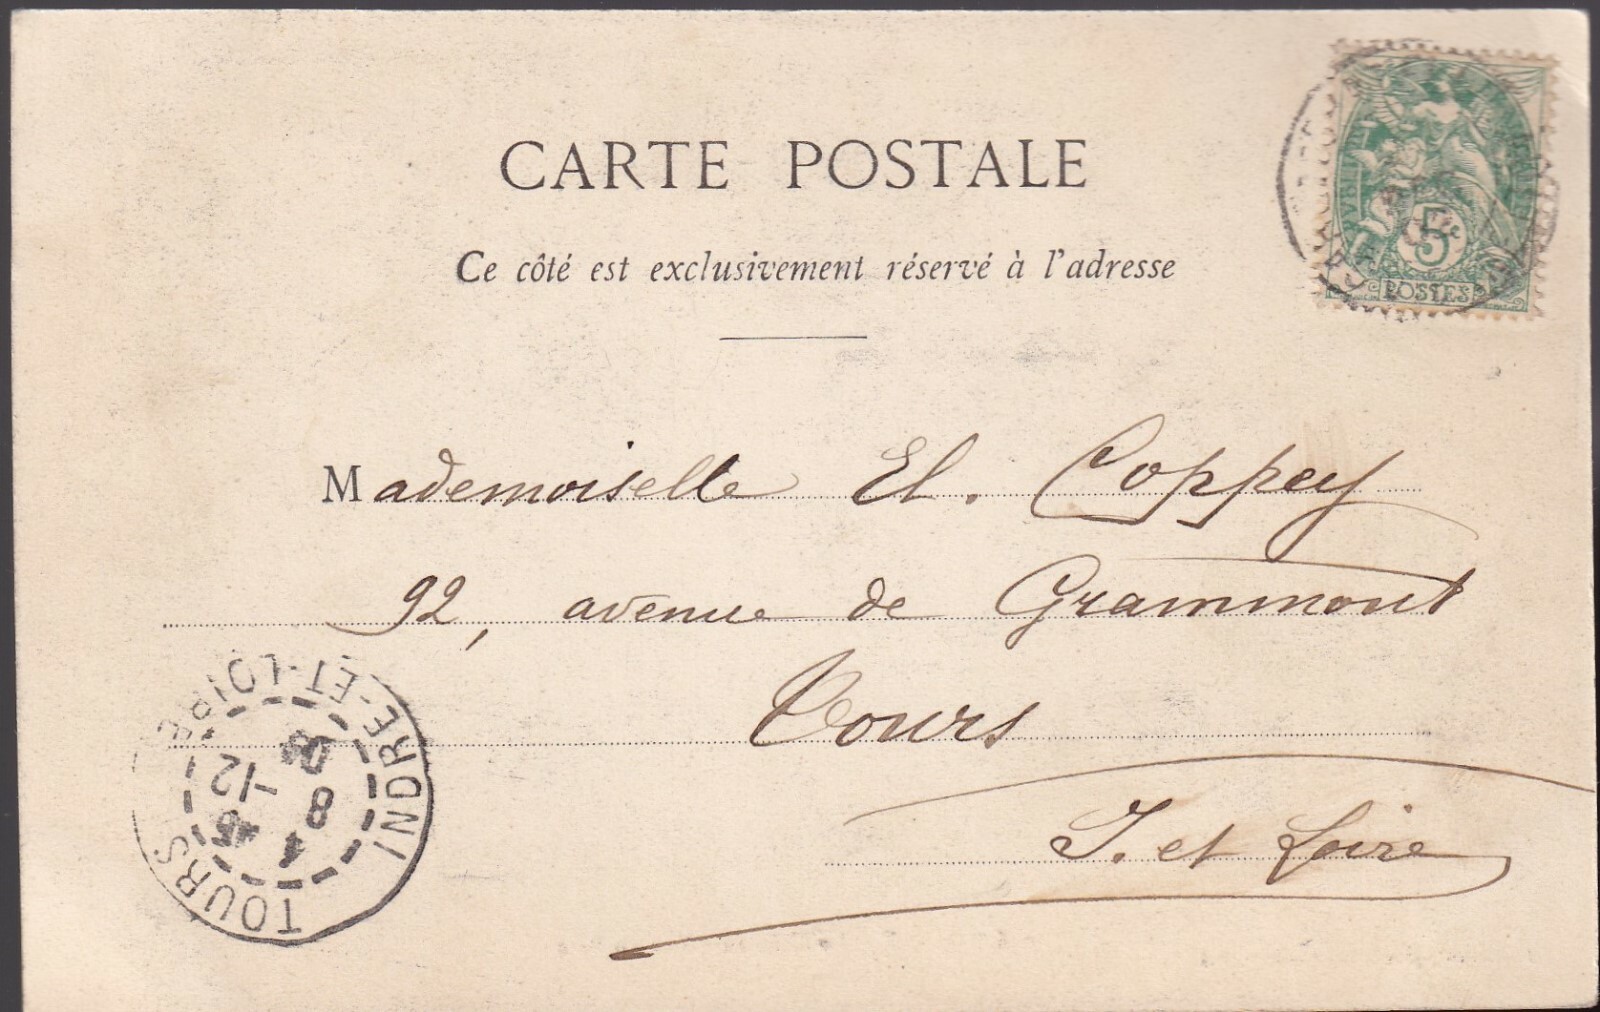 CARTE POSTALE
Ce côté est exclusivement réservé à l'adresse
Mademoiselle El. Coppey
92, avenue de Grammont
Tours
I. et Loire
5
POSTES
TOURS
INDRE-ET-LOIRE
8
-12